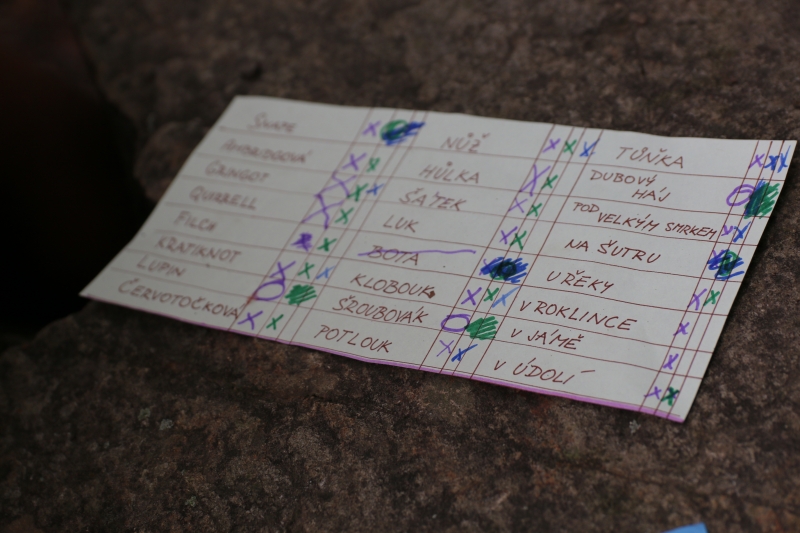 SNAPE
UMBRIDGOVÁ
GRINGOT
QUIRRELL
FILCH
KRATIKNOT
LUPIN
ČERVOTOČKOVÁ
NŮŽ
HŮLKA
ŠÁTEK
LUK
BOTA
KLOBOUK
ŠROUBOVÁK
POTLOUK
TŮŇKA
DUBOVÝ
HÁJ
POD
VELKÝM SMRKEM
NA ŠUTRU
U ŘEKY
V ROKLINCE
V JÁMĚ
V ÚDOLÍ